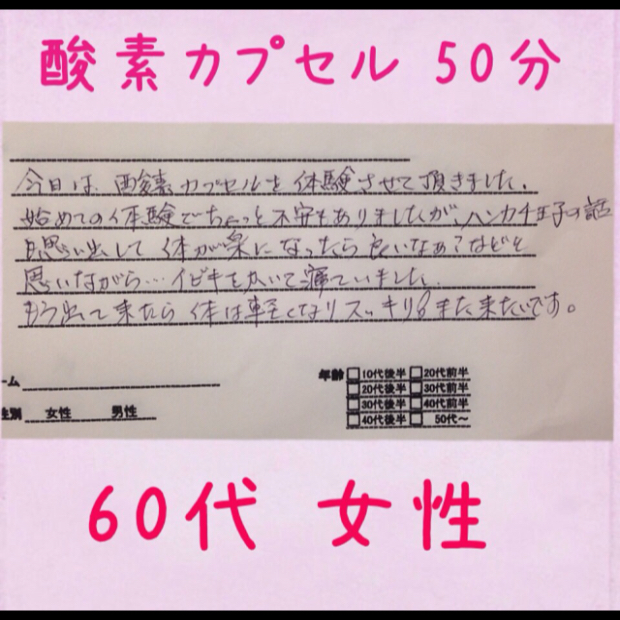 酸素カプセル 50分
今日は、酸素カプセルを体験させて頂きました。
始めての体験でちょっと不安もありましたが、ハンカチ王子の話
思い出して体が楽になったら良いなぁ?などと
思いながら…イビキをかいて寝ていました。
もう出て来たら体は軽くなりスッキリ また来たいです。
ーム
年齢 □10代後半 □20代前半
□20代後半 □30代前半
性別 女性 男性 □30代後半 □40代前半
□40代後半 □50代〜
60代 女性